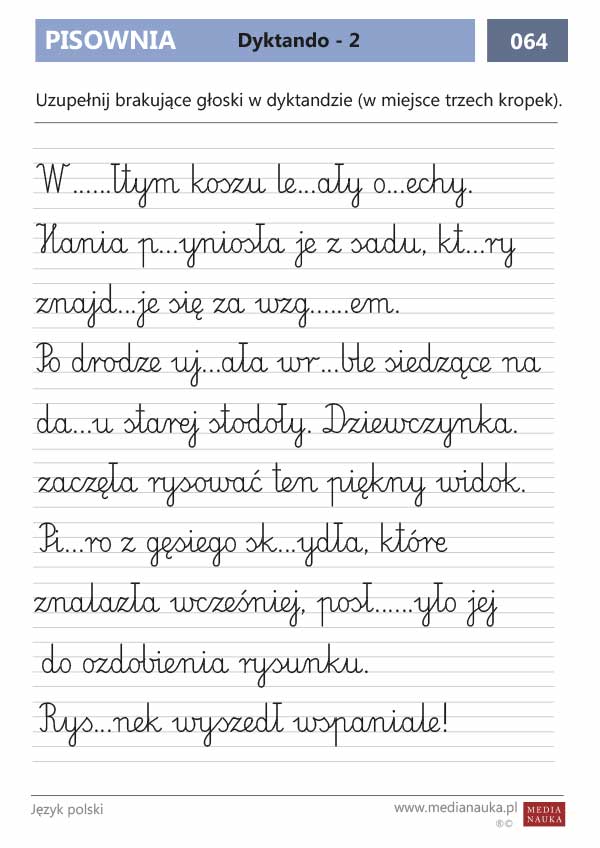 PISOWNIA Dyktando - 2 064
Uzupełnij brakujące głoski w dyktandzie (w miejsce trzech kropek).
W ......łtym koszu le...ały o...echy.
Hania p...yniosła je z sadu, kt...ry
znajd...je się za wzg......em.
Po drodze uj...ała wr...ble siedzące na
da...u starej stodoły. Dziewczynka.
zaczęła rysować ten piękny widok.
Pi...ro z gęsiego sk...ydła, które
znalazła wcześniej, posł......yło jej
do ozdobienia rysunku.
Rys...nek wyszedł wspaniale!
Język polski www.medianauka.pl MEDIA
®© NAUKA